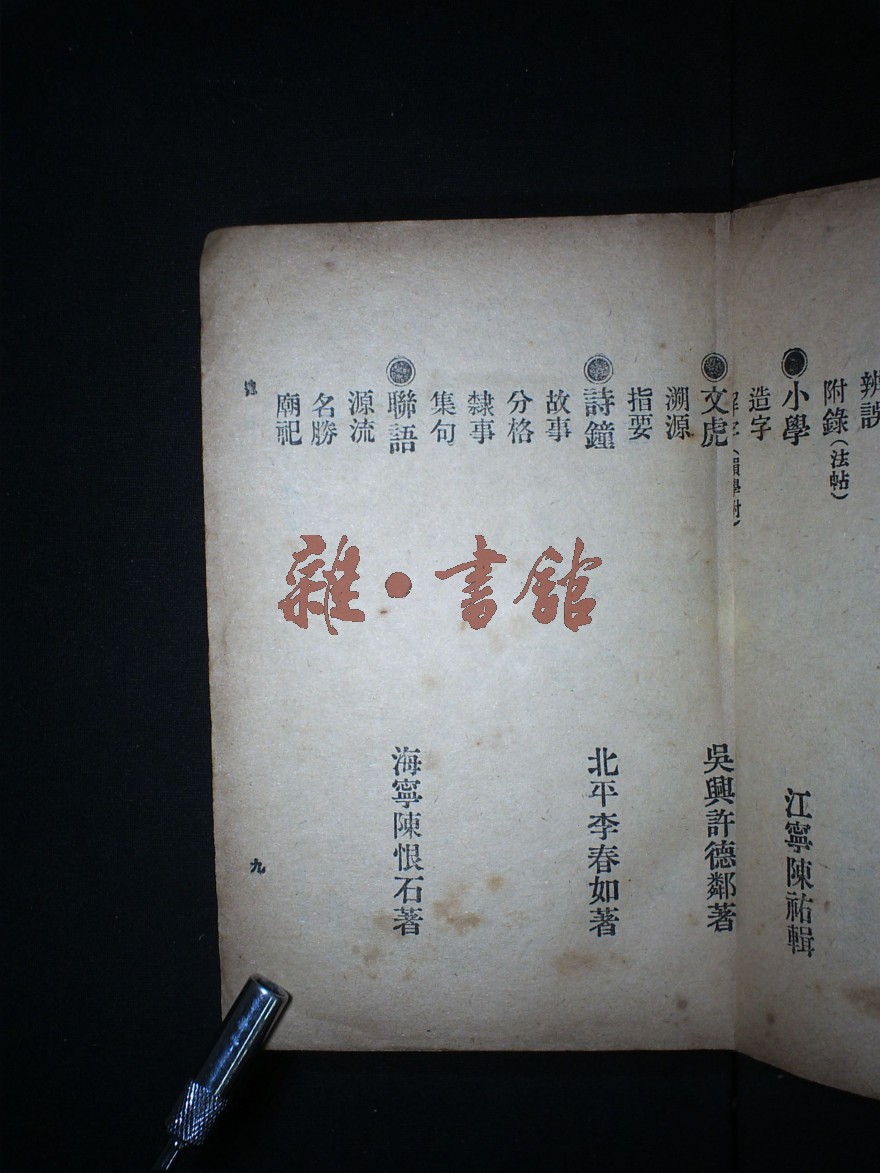 辨誤
附錄（法帖）
●小學
江寧陳祐輯
造字
解字（韻學附）
●文虎
吳興許德鄰著
溯源
指要
●詩鐘
北平李春如著
故事
分格
隸事
集句
●聯語
海寧陳恨石著
源流
名勝
廟祀
九
雜·書館